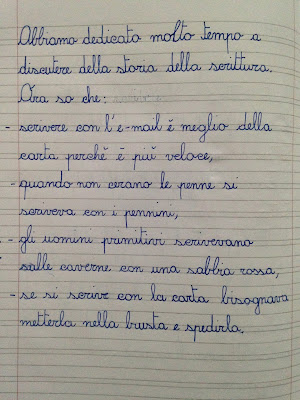 Abbiamo dedicato molto tempo a
discutere della storia della scrittura.
Ora so che:
- scrivere con l'e-mail è meglio della
carta perchè è più veloce,
- quando non cerano le penne si
scriveva con i pennini,
- gli uomini primitivi scrivevano
sulle caverne con una sabbia rossa,
- se si scrive con la carta bisognava
metterla nella busta e spedirla.